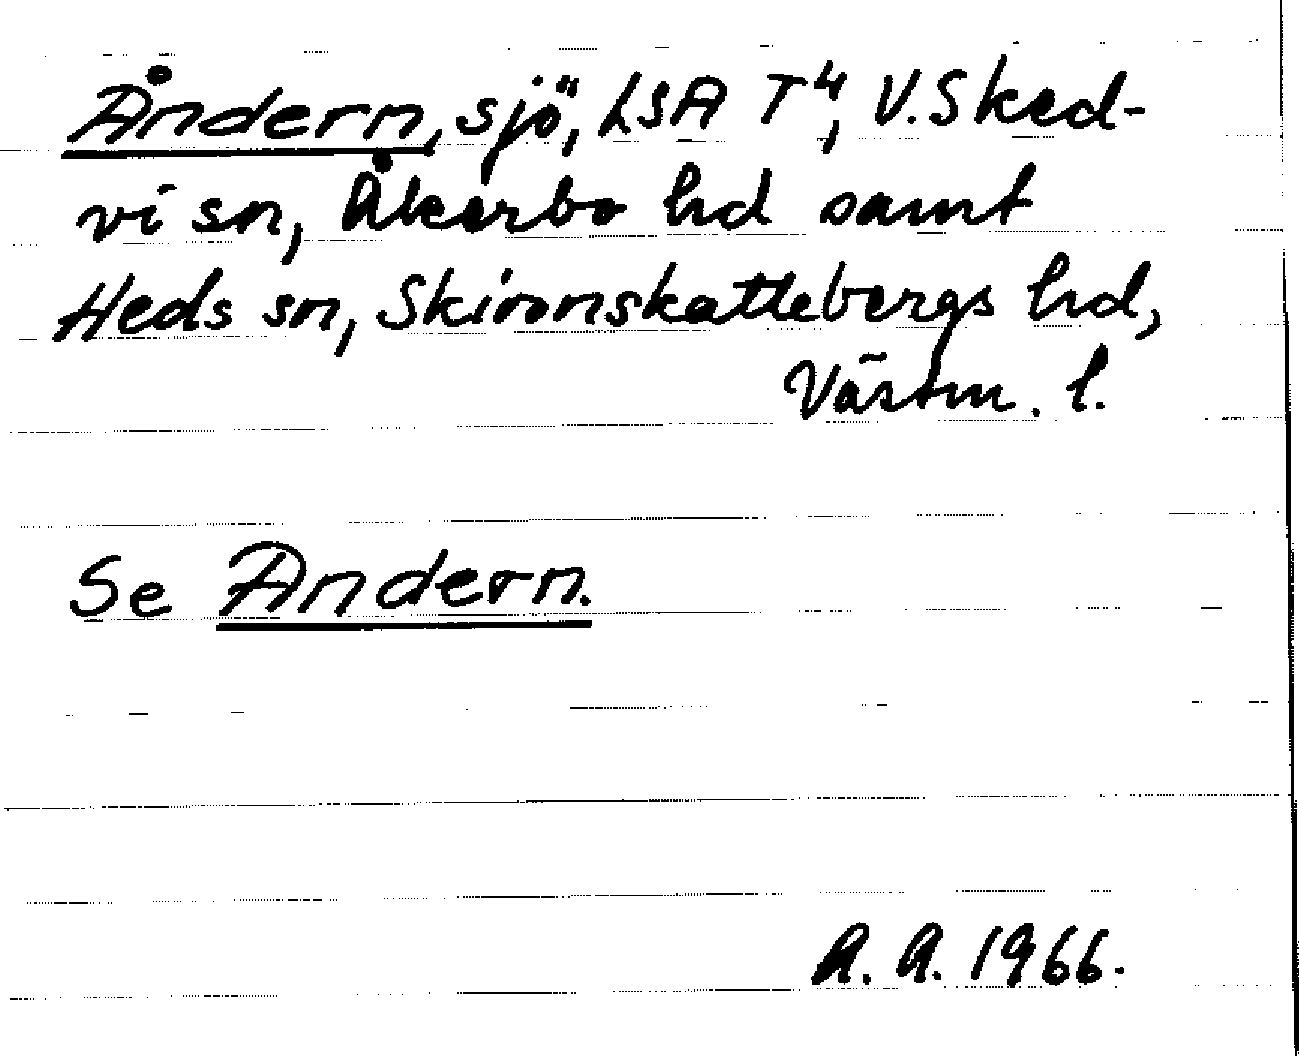 Åndern, sjö, LSA T4, V. Sked-
vi sn, Åkerbo hd samt
Heds sn, Skinnskattebergs hd,
Västm. l.
Se Andern.
A. A. 1966.